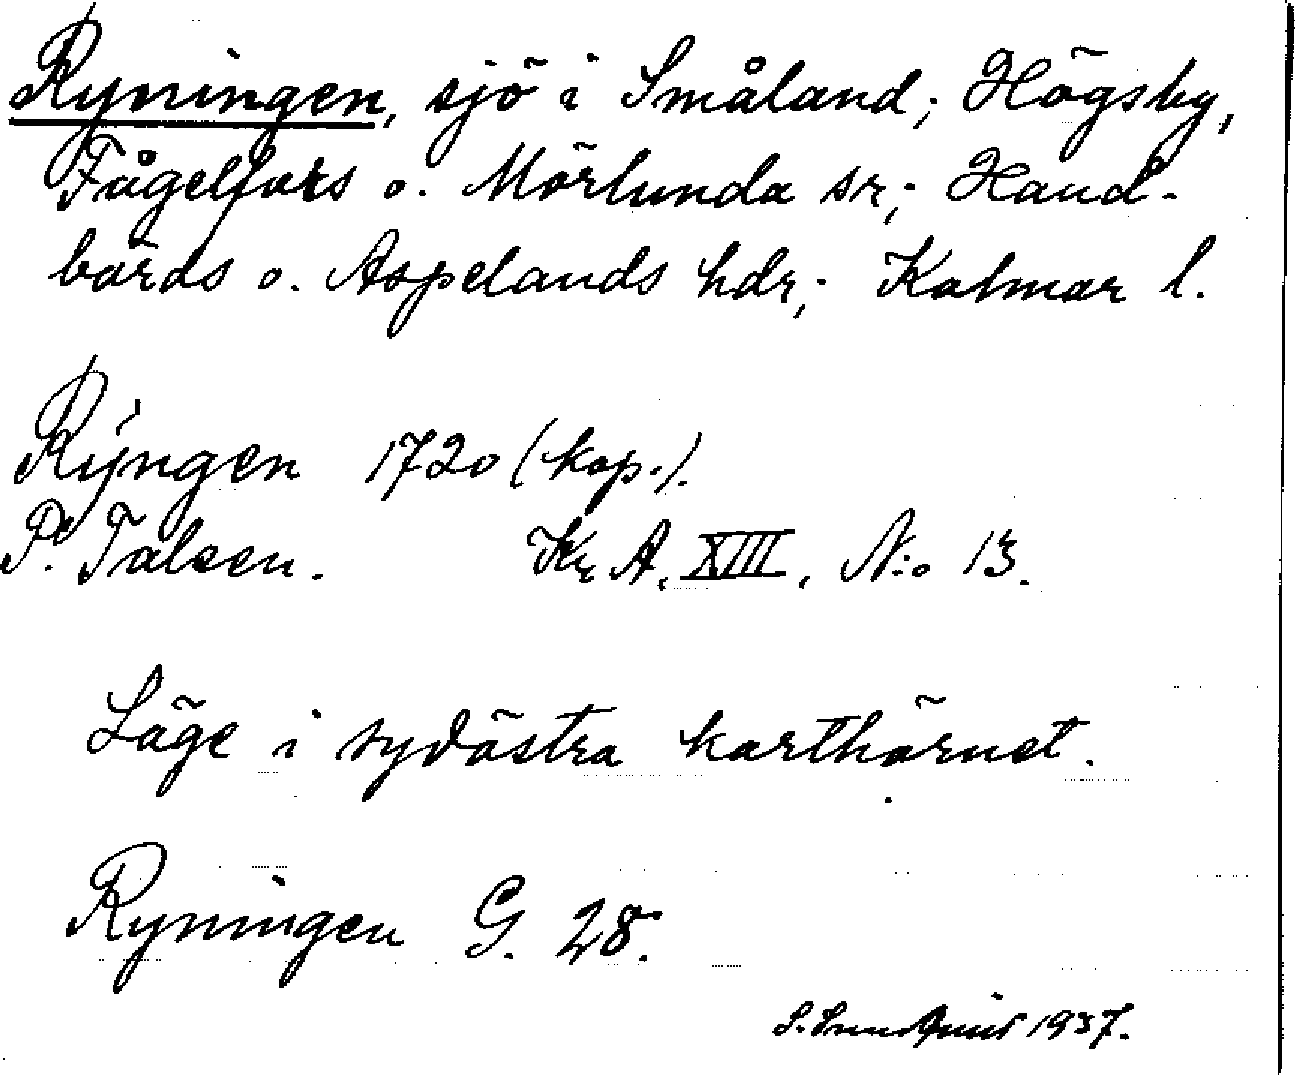 Ryningen, sjö i Småland; Högsby,
Fågelfors o. Mörlunda sr; Hand-
börds o. Aspelands hdr; Kalmar l.
Rýngen 1720 (kop.).
P. Talsen. Kr. A. XIII, N:o 13.
Läge i sydöstra karthörnet.
Ryningen G. 28.
1937.